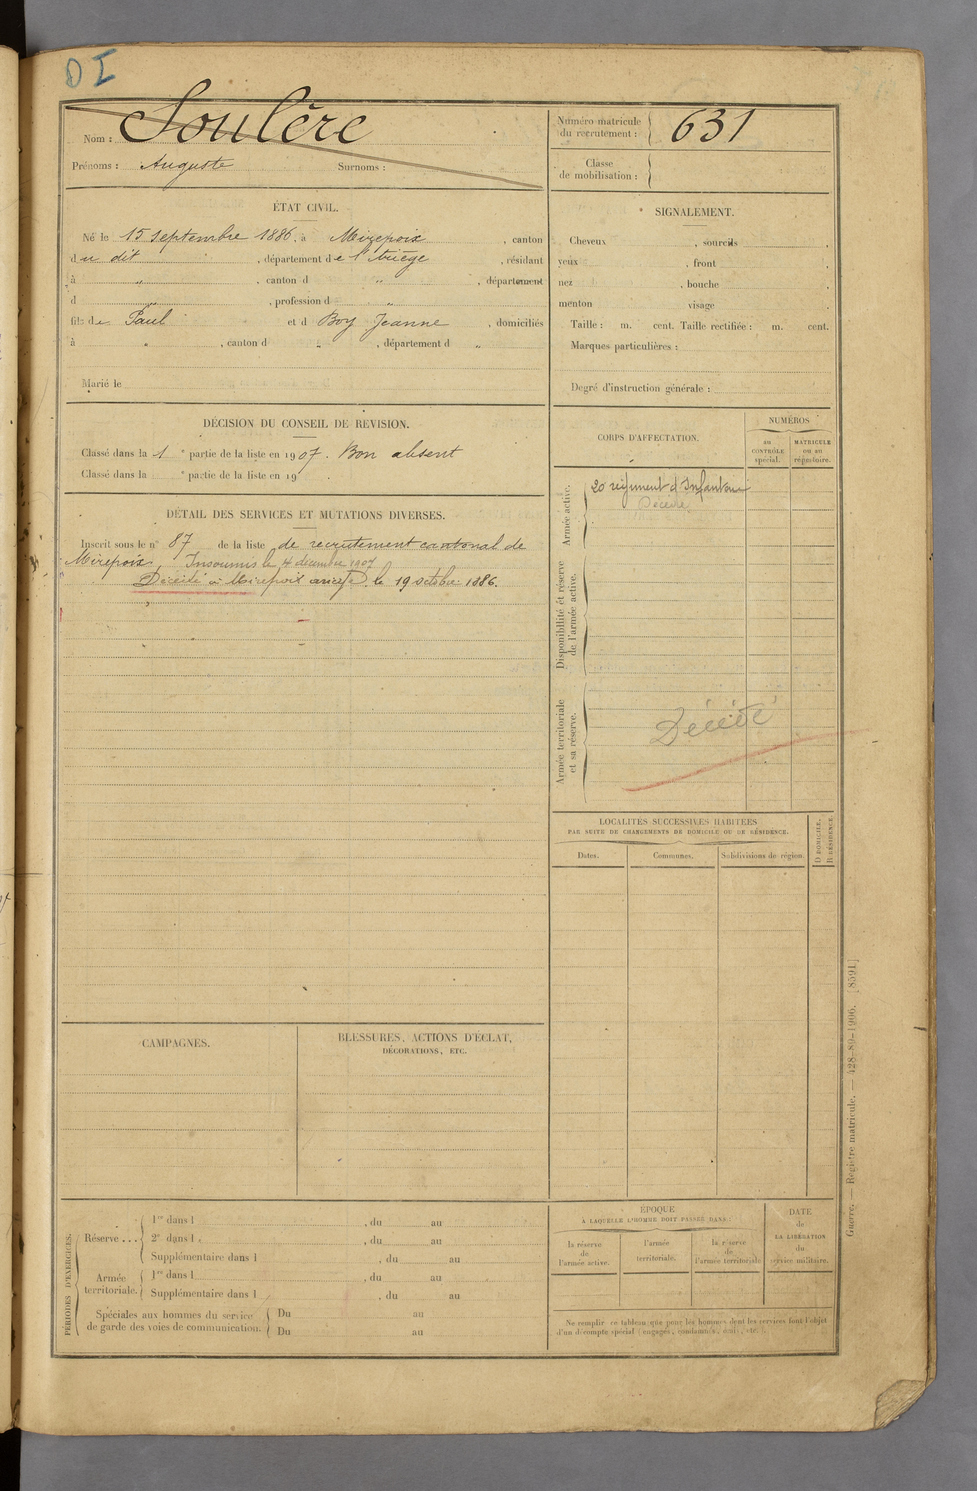 DI
Nom : Soulère
Prénoms : Auguste Surnoms :
Numéro matricule du recrutement : 631
Classe de mobilisation :
ÉTAT CIVIL.
Né le 15 septembre 1886, à Mirepoix, canton
du dit, département de l'Ariège, résidant
à " , canton d " , département
d " , profession d "
fils de Paul et d Boy Jeanne, domiciliés
à " , canton d " , département d "
Marié le
SIGNALEMENT.
Cheveux , sourcils ,
yeux , front ,
nez , bouche ,
menton visage
Taille : m. cent. Taille rectifiée : m. cent.
Marques particulières :
Degré d'instruction générale :
DÉCISION DU CONSEIL DE REVISION.
Classé dans la 1e partie de la liste en 1907. Bon absent
Classé dans la e partie de la liste en 19
DÉTAIL DES SERVICES ET MUTATIONS DIVERSES.
Inscrit sous le n° 87 de la liste de recrutement cantonal de
Mirepoix, Insoumis le 4 décembre 1907
Décédé à Mirepoix le 19 octobre 1886.
CORPS D'AFFECTATION.
NUMÉROS
au CONTRÔLE spécial.
MATRICULE ou au répertoire.
Armée active.
20 régiment d'Infanterie
Décédé
Disponibilité et réserve de l'armée active.
Armée territoriale et sa réserve.
Décédé
LOCALITÉS SUCCESSIVES HABITÉES
PAR SUITE DE CHANGEMENTS DE DOMICILE OU DE RÉSIDENCE.
Dates. Communes. Subdivisions de région.
D DOMICILE.
R RÉSIDENCE.
CAMPAGNES.
BLESSURES, ACTIONS D'ÉCLAT,
DÉCORATIONS, ETC.
PÉRIODES D'EXERCICES.
Réserve ...
1re dans l , du au
2e dans l , du au
Supplémentaire dans l , du au
Armée territoriale.
1re dans l , du au
Supplémentaire dans l , du au
Spéciales aux hommes du service
de garde des voies de communication.
Du au
Du au
ÉPOQUE
À LAQUELLE L'HOMME DOIT PASSER DANS :
la réserve de l'armée active.
l'armée territoriale.
la réserve de l'armée territoriale.
DATE de LA LIBÉRATION du service militaire.
Ne remplir ce tableau que pour les hommes dont les services font l'objet
d'un décompte spécial (engagés, condamnés, exclus, etc.).
Guerre. — Registre matricule. — 428-89-1906. [8591]